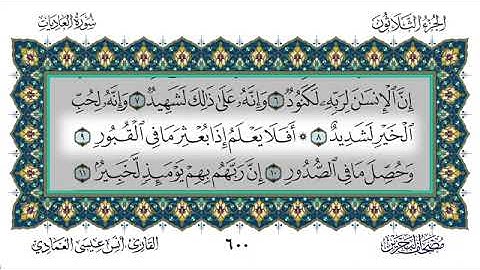 الجزء الثلاثون
سورة العاديات
إِنَّ ٱلْإِنسَٰنَ لِرَبِّهِۦ لَكَنُودٌ ٦ وَإِنَّهُۥ عَلَىٰ ذَٰلِكَ لَشَهِيدٌ ٧ وَإِنَّهُۥ لِحُبِّ
ٱلْخَيْرِ لَشَدِيدٌ ٨ ۞ أَفَلَا يَعْلَمُ إِذَا بُعْثِرَ مَا فِى ٱلْقُبُورِ ٩
وَحُصِّلَ مَا فِى ٱلصُّدُورِ ١٠ إِنَّ رَبَّهُم بِهِمْ يَوْمَئِذٍ لَّخَبِيرٌۢ ١١
٦٠٠
القارئ أنس عيسى العمادي